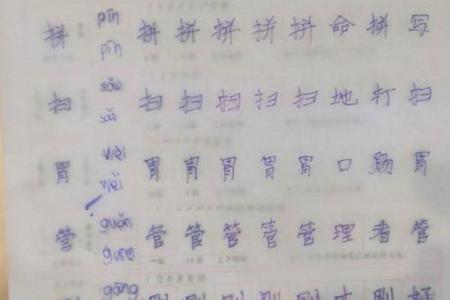 拼 pīn 拼 拼 拼 拼 拼 命 拼 写
pīn
扫 sǎo 扫 扫 扫 扫 扫 地 打 扫
sǎo
胃 wèi 胃 胃 胃 胃 胃 口 肠 胃
wèi
管 guǎn 管 管 管 管 管 理 看 管
guǎn
刚 gāng 刚 刚 刚 刚 刚 才 刚 好